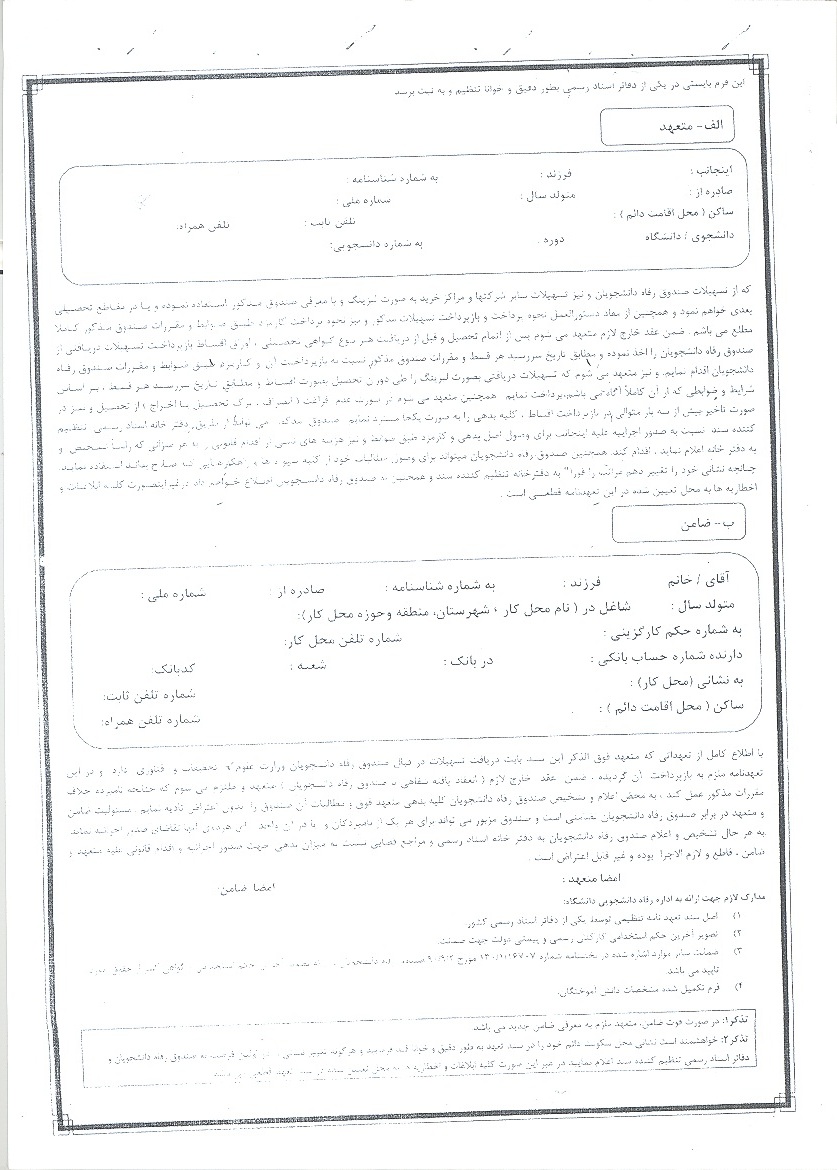 این فرم بایستی در یکی از دفاتر اسناد رسمی بطور دقیق و خوانا تنظیم و به ثبت برسد
الف- متعهد
اینجانب : فرزند : به شماره شناسنامه :
صادره از : متولد سال : شماره ملی :
ساکن ( محل اقامت دائم ) : تلفن ثابت : تلفن همراه:
دانشجوی / دانشگاه دوره . به شماره دانشجویی:
که از تسهیلات صندوق رفاه دانشجویان و نیز تسهیلات سایر شرکتها و مراکز خرید به صورت لیزینگ و با معرفی صندوق مذکور استفاده نموده و یا در مقاطع تحصیلی
بعدی خواهم نمود و همچنین از مفاد دستورالعمل نحوه پرداخت و بازپرداخت تسهیلات مذکور و نیز نحوه پرداخت کارمزد طبق ضوابط و مقررات صندوق مذکور کاملا
مطلع می باشم . ضمن عقد خارج لازم متعهد می شوم پس از اتمام تحصیل و قبل از دریافت هر نوع گواهی تحصیلی ، اوراق اقساط بازپرداخت تسهیلات دریافتی از
صندوق رفاه دانشجویان را اخذ نموده و مطابق تاریخ سررسید هر قسط و مقررات صندوق مذکور نسبت به بازپرداخت آن و کارمزد طبق ضوابط و مقررات صندوق رفاه
دانشجویان اقدام نمایم. و نیز متعهد می شوم که تسهیلات دریافتی بصورت لیزینگ را طی دوران تحصیل بصورت اقساط و مطابق تاریخ سررسید هر قسط ، بر اساس
شرایط و ضوابطی که از آن کاملاً آگاه می باشم،پرداخت نمایم همچنین متعهد می شوم در صورت عدم فراغت ( انصراف ، ترک تحصیل یا اخراج ) از تحصیل و نیز در
صورت تأخیر بیش از سه بار متوالی در بازپرداخت اقساط ، کلیه بدهی را به صورت یکجا مسترد نمایم صندوق مذکور می تواند از طریق دفتر خانه اسناد رسمی تنظیم
کننده سند نسبت به صدور اجراییه علیه اینجانب برای وصول اصل بدهی و کارمزد طبق ضوابط و نیز هزینه های ناشی از اقدام قانونی را به هر میزانی که رأساً تشخیص و
به دفتر خانه اعلام نماید ، اقدام کند. همچنین صندوق رفاه دانشجویان میتواند برای وصول مطالبات خود از کلیه شیوه ها و راهکارهایی که صلاح بداند استفاده نماید.
چنانچه نشانی خود را تغییر دهم مراتب را فورا" به دفترخانه تنظیم کننده سند و همچنین به صندوق رفاه دانشجویی اطلاع خواهم داد در غیر اینصورت کلیه ابلاغات و
اخطاریه ها به محل تعیین شده در این تعهدنامه قطعی است .
ب- ضامن
آقای / خانم فرزند : به شماره شناسنامه : صادره از : شماره ملی :
متولد سال : شاغل در ( نام محل کار ، شهرستان، منطقه وحوزه محل کار):
به شماره حکم کارگزینی : شماره تلفن محل کار:
دارنده شماره حساب بانکی : در بانک : شعبه : کدبانک:
به نشانی (محل کار) : شماره تلفن ثابت:
ساکن ( محل اقامت دائم ) : شماره تلفن همراه:
با اطلاع کامل از تعهداتی که متعهد فوق الذکر این سند بابت دریافت تسهیلات در قبال صندوق رفاه دانشجویان وزارت علوم تحقیقات و فناوری دارد و در این
تعهدنامه ملزم به بازپرداخت آن گردیده ، ضمن عقد خارج لازم ( انعقاد یافته شفاهی با صندوق رفاه دانشجویان ) متعهد و ملتزم می شوم که چنانچه نامبرده خلاف
مقررات مذکور عمل کند ، به محض اعلام و تشخیص صندوق رفاه دانشجویان کلیه بدهی متعهد فوق و مطالبات آن صندوق را بدون اعتراض تادیه نمایم . مسئولیت ضامن
و متعهد در برابر صندوق رفاه دانشجویان تضامنی است و صندوق مزبور می تواند برای هر یک از نامبردگان و یا در آن واحد برای هردوی آنها تقاضای صدور اجرائیه نماید
به هر حال تشخیص و اعلام صندوق رفاه دانشجویان به دفتر خانه اسناد رسمی و مراجع قضایی نسبت به میزان بدهی جهت صدور اجرائیه و اقدام قانونی علیه متعهد و
ضامن ، قاطع و لازم الاجرا بوده و غیر قابل اعتراض است .
امضا متعهد : امضا ضامن:
مدارک لازم جهت ارائه به اداره رفاه دانشجویی دانشگاه:
۱) اصل سند تعهد نامه تنظیمی توسط یکی از دفاتر اسناد رسمی کشور
۲) تصویر آخرین حکم استخدامی کارکنان رسمی و پیمانی دولت جهت ضمانت.
۳) ضمانت سایر موارد اشاره شده در بخشنامه شماره مورخ
تایید می باشد
۴) فرم تکمیل شده مشخصات دانش آموختگان.
تذکر۱: در صورت فوت ضامن، متعهد ملزم به معرفی ضامن جدید می باشد
تذکر۲: خواهشمند است نشانی محل سکونت دائم خود را در سند تعهد به طور دقیق و خود قید فرمایید و هرگونه تغییر نشانی را در اولین فرصت به صندوق رفاه دانشجویان و
دفاتر اسناد رسمی تنظیم کننده سند اعلام نمایید در غیر این صورت کلیه ابلاغات و اخطاریه ها به محل تعیین شده در سند تعهد